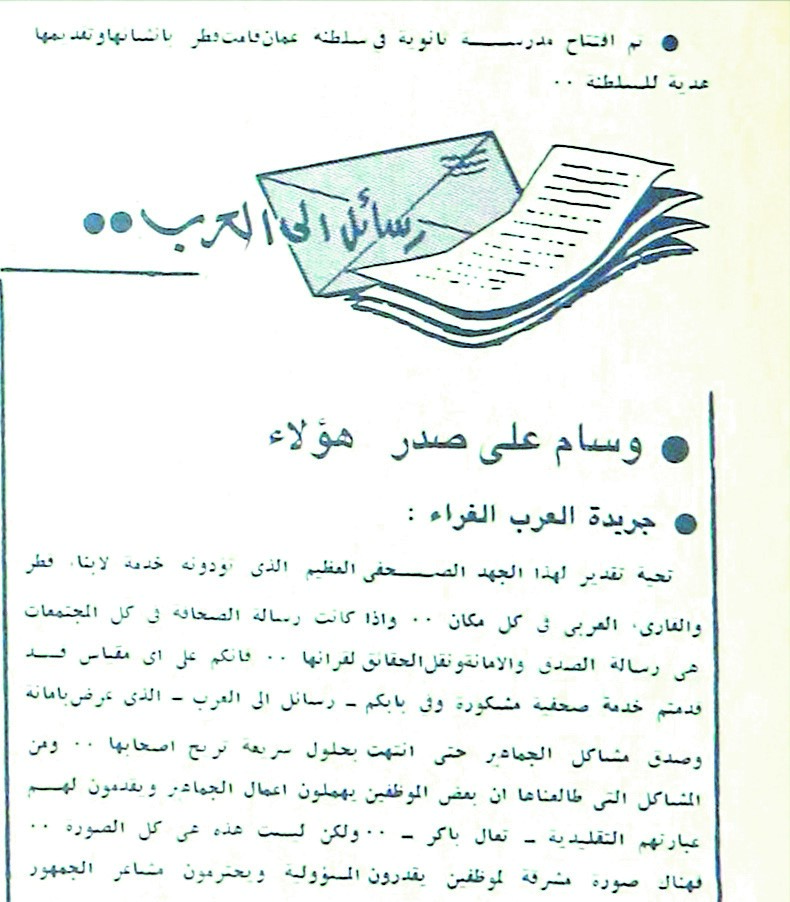 ● تم افتتاح مدرســـة ثانوية في سلطنة عمان قامت قطر بانشائها وتقديمها
هدية للسلطنة ٠٠
رسائل الى العرب ●●
● وسام على صدر هؤلاء
● جريدة العرب الغراء :
تحية تقدير لهذا الجهد الصـــحفى العظيم الذى تؤدونه خدمة لابناء قطر
والقارىء العربى فى كل مكان ٠٠ واذا كانت رسالة الصحافة فى كل المجتمعات
هى رسالة الصدق والامانة ونقل الحقائق لقرائها ٠٠ فانكم على اى مقياس قـــد
قدمتم خدمة صحفية مشكورة وفى بابكم ـ رسائل الى العرب ـ الذى عرض بامانة
وصدق مشاكل الجماهير حتى انتهت بحلول سريعة تريح اصحابها ٠٠ ومن
المشاكل التى طالعناها ان بعض الموظفين يهملون اعمال الجماهير ويقدمون لهـــم
عبارتهم التقليدية ـ تعال باكر ـ ٠٠ ولكن ليست هذه هى كل الصورة ٠٠
فهناك صورة مشرقة لموظفين يقدرون المسؤولية ويحترمون مشاعر الجمهور